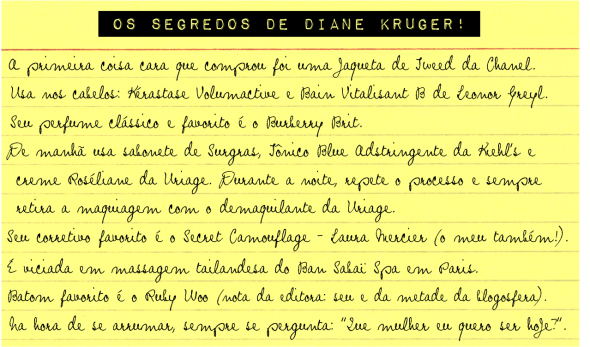 OS SEGREDOS DE DIANE KRUGER!
A primeira coisa cara que comprou foi uma Jaqueta de Tweed da Chanel.
Usa nos cabelos: Kérastase Volumactive e Bain Vitalisant B de Leonor Greyl.
Seu perfume clássico e favorito é o Burberry Brit.
De manhã usa sabonete de Surgras, Tônico Blue Adstringente da Kiehl's e
creme Roséliane da Uriage. Durante a noite, repete o processo e sempre
retira a maquiagem com o demaquilante da Uriage.
Seu corretivo favorito é o Secret Camouflage - Laura Mercier (o meu também!).
É viciada em massagem tailandesa do Ban Sabaï Spa em Paris.
Batom favorito é o Ruby Woo (nota da editora: seu e da metade da blogosfera).
Na hora de se arrumar, sempre se pergunta: "Que mulher eu quero ser hoje?".